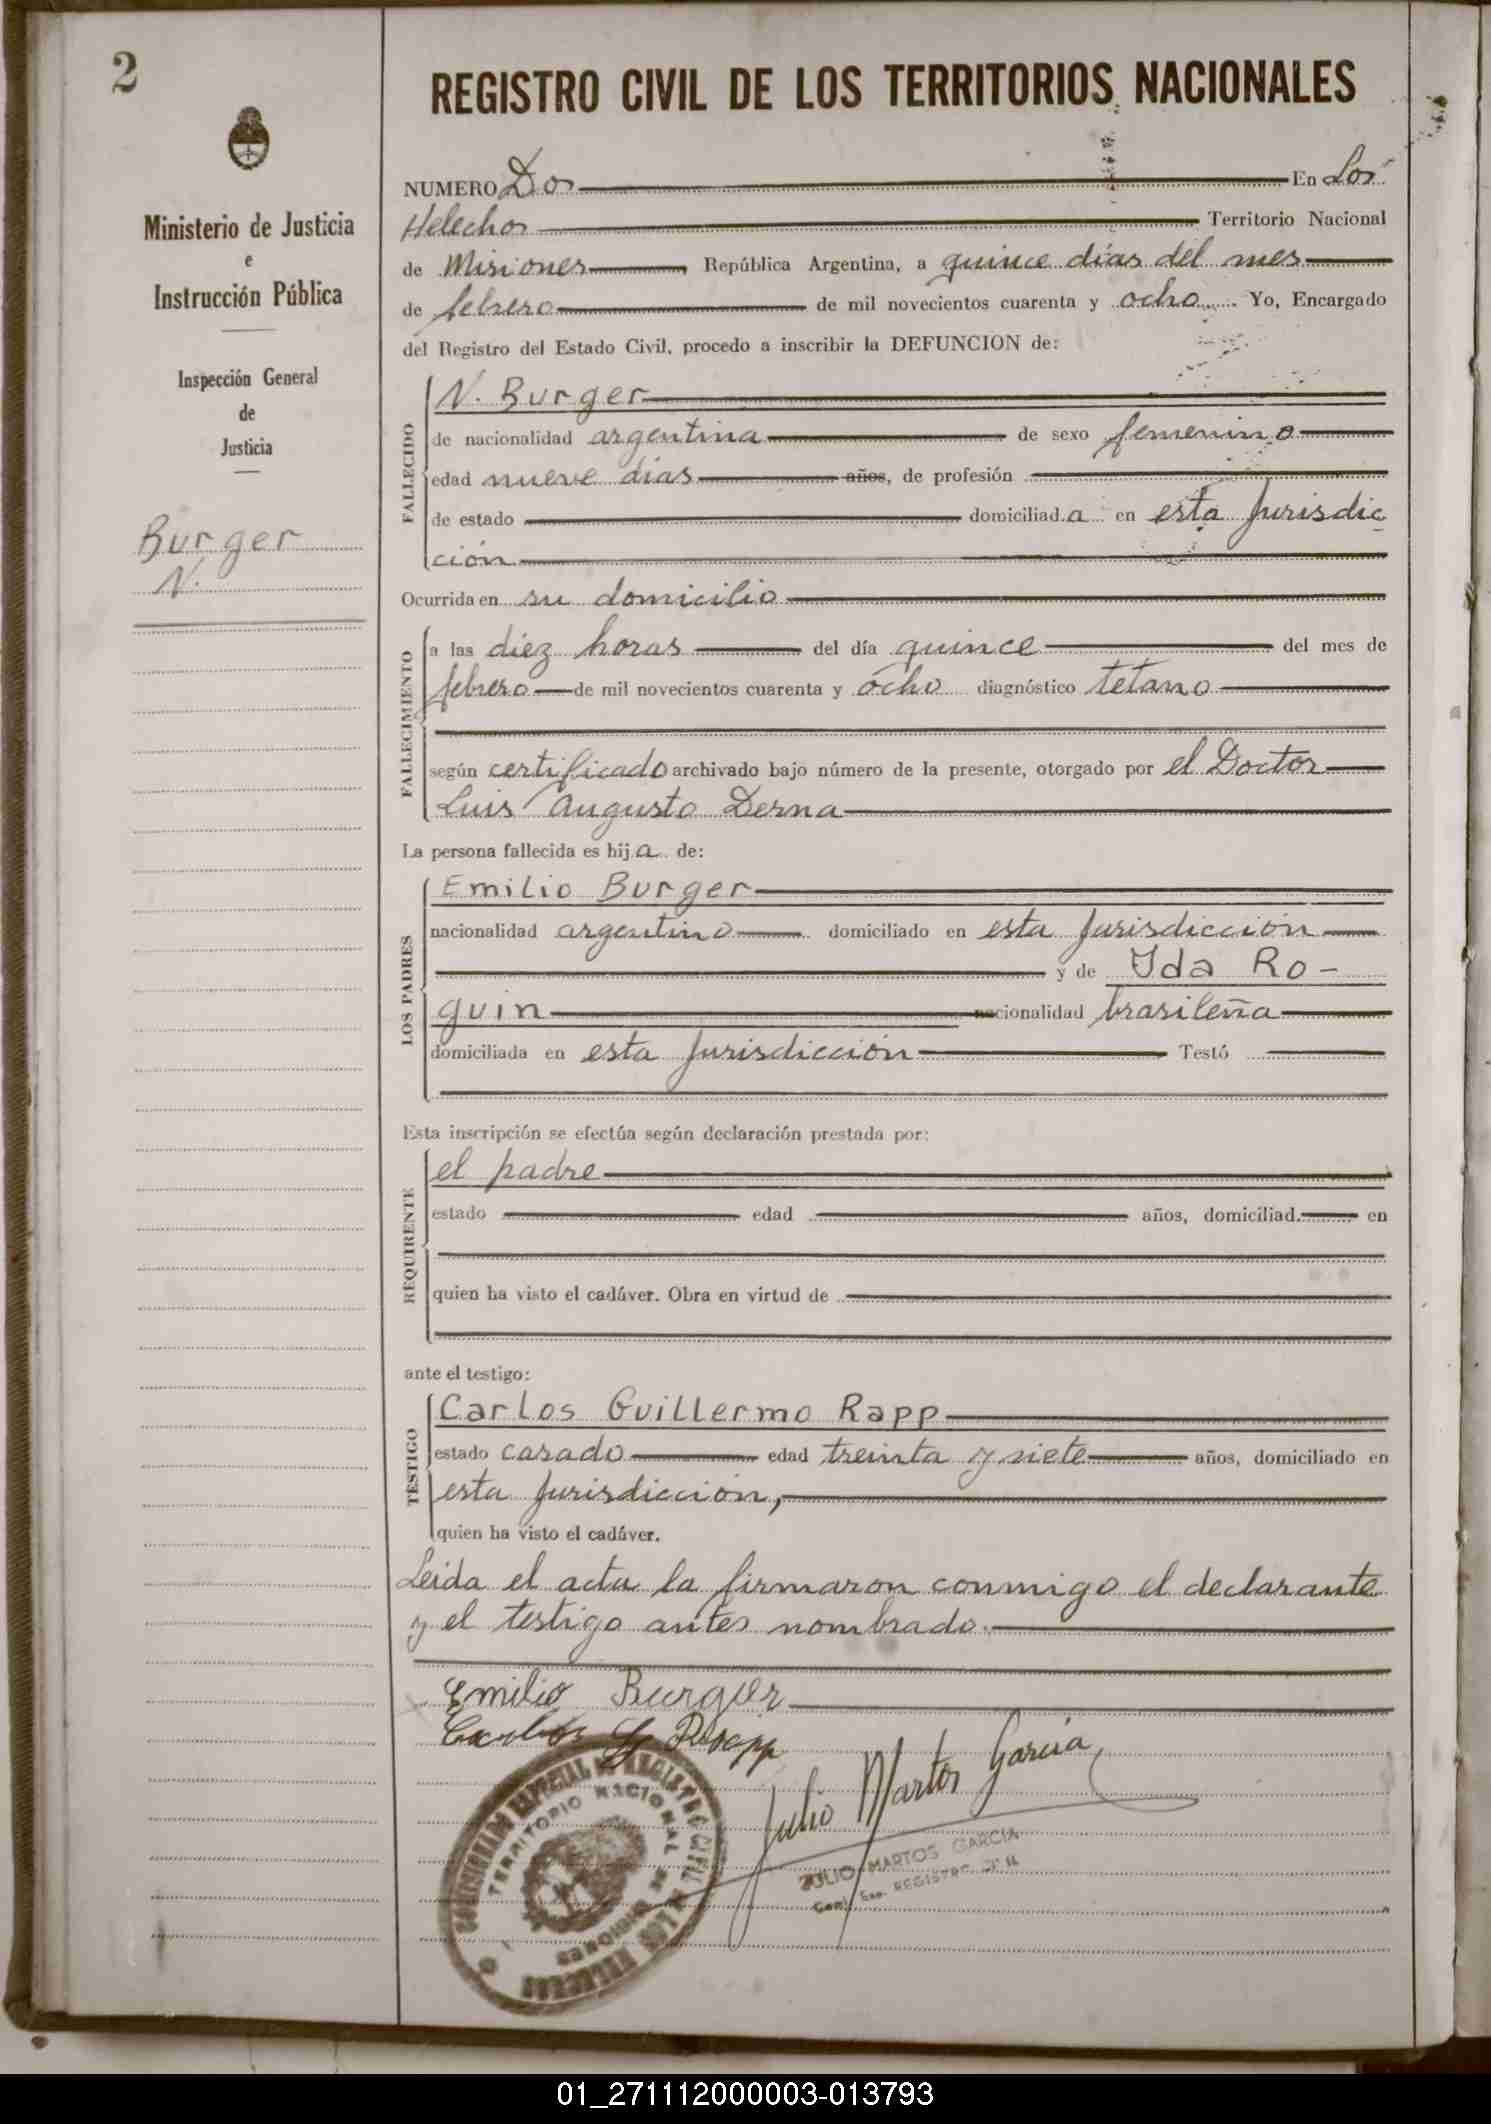 2
REGISTRO CIVIL DE LOS TERRITORIOS NACIONALES
Ministerio de Justicia
e
Instrucción Pública
Inspección General
de
Justicia
Burger
N.
NUMERO Dos En Los
Helechos Territorio Nacional
de Misiones República Argentina, a quince días del mes
de febrero de mil novecientos cuarenta y ocho Yo, Encargado
del Registro del Estado Civil, procedo a inscribir la DEFUNCION de:
FALLECIDO
N. Burger
de nacionalidad argentina de sexo femenino
edad nueve días años, de profesión
de estado domiciliad a en esta Jurisdic
ción
Ocurrida en su domicilio
FALLECIMIENTO
a las diez horas del día quince del mes de
febrero de mil novecientos cuarenta y ocho diagnóstico tétano
según certificado archivado bajo número de la presente, otorgado por el Doctor
Luis Augusto Derna
La persona fallecida es hij a de:
LOS PADRES
Emilio Burger
nacionalidad argentino domiciliado en esta Jurisdicción
y de Ida Ro-
guin nacionalidad brasileña
domiciliada en esta Jurisdicción Testó
Esta inscripción se efectúa según declaración prestada por:
REQUIRENTE
el padre
estado edad años, domiciliad. en
quien ha visto el cadáver. Obra en virtud de
ante el testigo:
TESTIGO
Carlos Guillermo Rapp
estado casado edad treinta y siete años, domiciliado en
esta Jurisdicción,
quien ha visto el cadáver.
Leida el acta la firmaron conmigo el declarante
y el testigo antes nombrado.
Emilio Burger
Carlos G Rapp
Julio Martos García
JULIO MARTOS GARCIA
TERRITORIO NACIONAL DE MISIONES
01_271112000003-013793